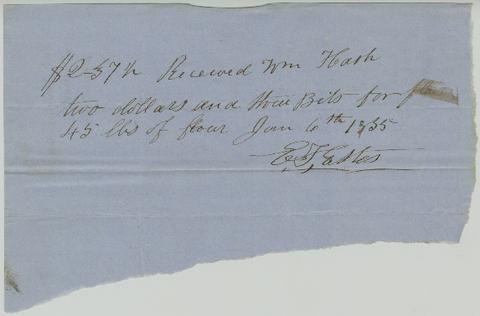 $2-37½ Received Wm Hash
two dollars and three Bits for
45 lbs of flour Jan 6th 1855
E. F. Estes